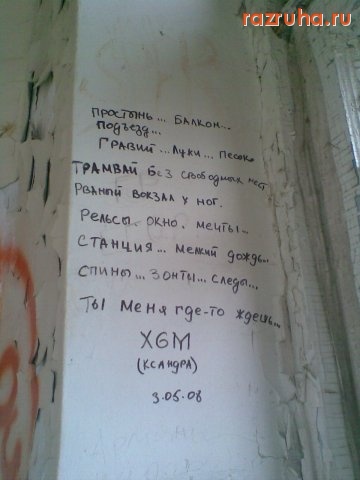 razruha.ru
Простынь... Балкон...
Подъезд...
Гравий... Луки... Песок
Трамвай без свободных мест
Рваный вокзал у ног.
Рельсы. Окно. Мечты...
Станция... Мелкий дождь...
Спины... Зонты... Следы...
Ты меня где-то ждёшь...
ХБМ
(Ксандра)
3.05.08